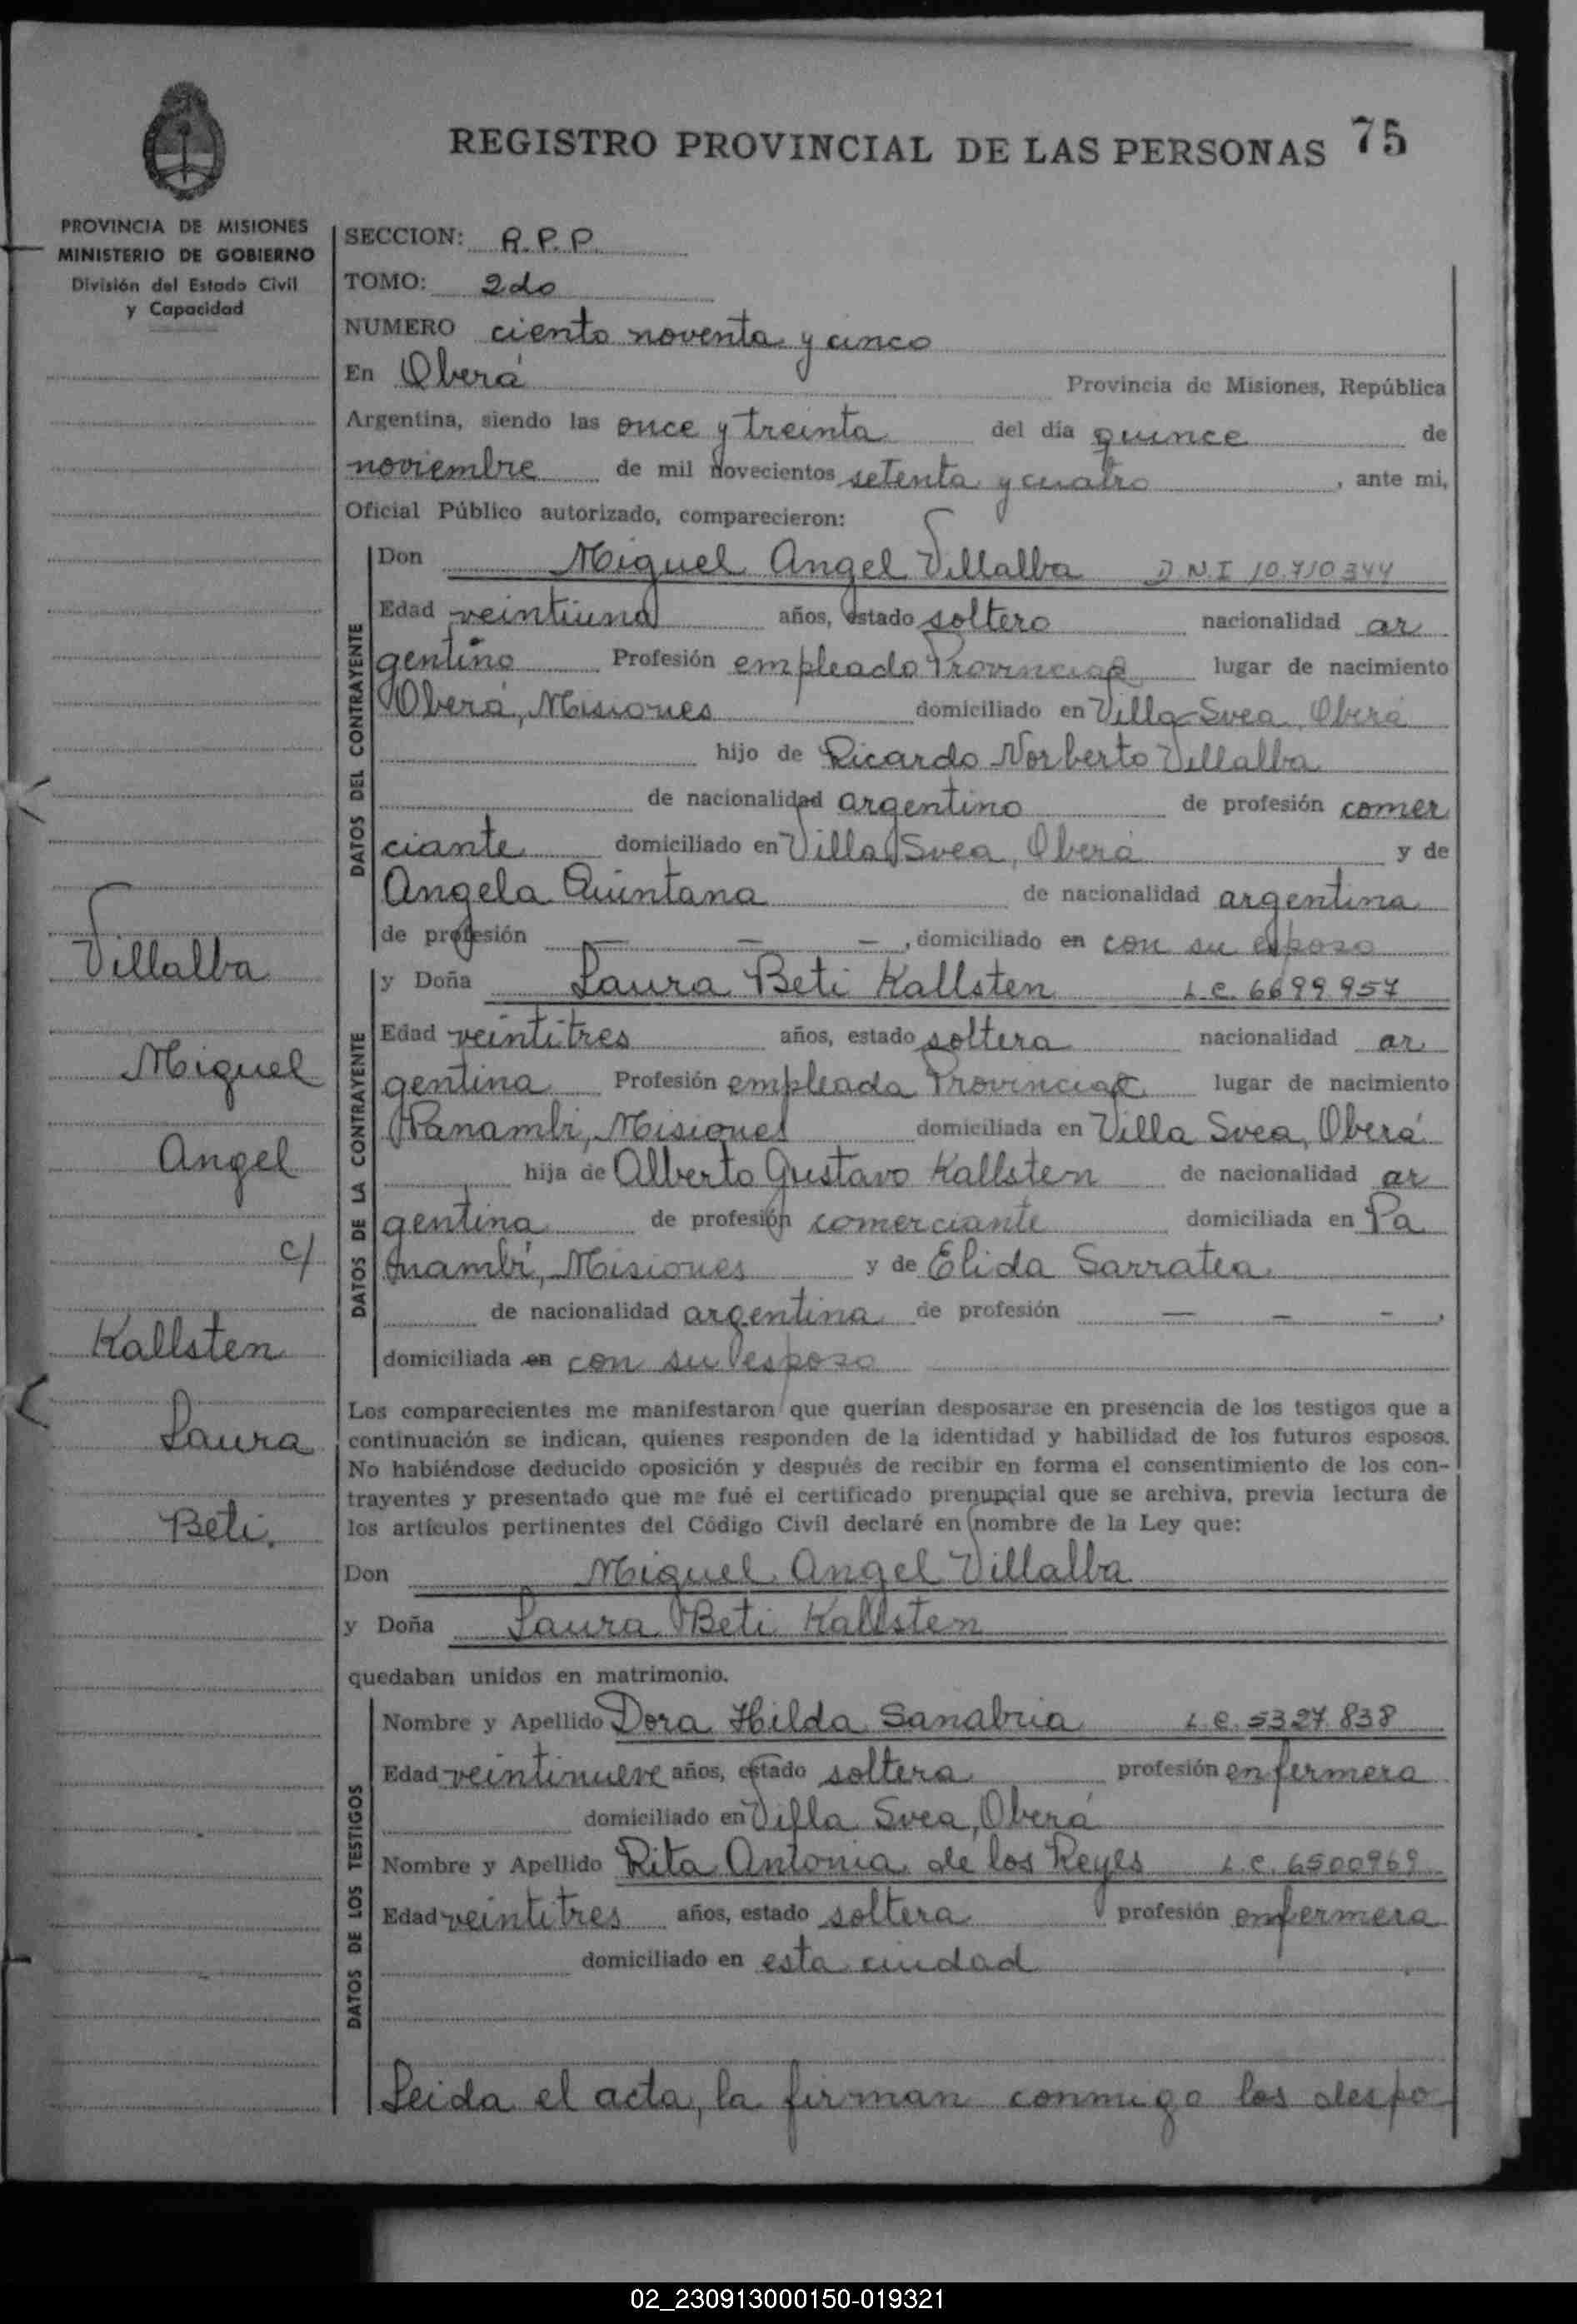 REGISTRO PROVINCIAL DE LAS PERSONAS 75
PROVINCIA DE MISIONES
MINISTERIO DE GOBIERNO
División del Estado Civil
y Capacidad
SECCION: R.P.P.
TOMO: 2do
NUMERO ciento noventa y cinco
En Oberá Provincia de Misiones, República
Argentina, siendo las once y treinta del día quince de
noviembre de mil novecientos setenta y cuatro, ante mi,
Oficial Público autorizado, comparecieron:
DATOS DEL CONTRAYENTE
Don Miguel Angel Villalba D.N.I 10.710344
Edad veintiuno años, estado soltero nacionalidad ar
gentino Profesión empleado Provincial lugar de nacimiento
Oberá, Misiones domiciliado en Villa Svea, Oberá
hijo de Ricardo Norberto Villalba
de nacionalidad argentino de profesión comer
ciante domiciliado en Villa Svea, Oberá y de
Angela Quintana de nacionalidad argentina
de profesión — — —, domiciliado en con su esposo
DATOS DE LA CONTRAYENTE
y Doña Laura Beti Kallsten L.C. 6699957
Edad veintitres años, estado soltera nacionalidad ar
gentina Profesión empleada Provincial lugar de nacimiento
Panambi, Misiones domiciliada en Villa Svea, Oberá
hija de Alberto Gustavo Kallsten de nacionalidad ar
gentina de profesión comerciante domiciliada en Pa
nambí, Misiones y de Elida Sarratea
de nacionalidad argentina de profesión — — -,
domiciliada en con su esposo
Villalba
Miguel
Angel
c/
Kallsten
Laura
Beti.
Los comparecientes me manifestaron que querían desposarse en presencia de los testigos que a
continuación se indican, quienes responden de la identidad y habilidad de los futuros esposos.
No habiéndose deducido oposición y después de recibir en forma el consentimiento de los con-
trayentes y presentado que me fué el certificado prenupcial que se archiva, previa lectura de
los artículos pertinentes del Código Civil declaré en nombre de la Ley que:
Don Miguel Angel Villalba
y Doña Laura Beti Kallsten
quedaban unidos en matrimonio.
DATOS DE LOS TESTIGOS
Nombre y Apellido Dora Hilda Sanabria L.C. 5327838
Edad veintinueve años, estado soltera profesión enfermera
domiciliado en Villa Svea, Oberá
Nombre y Apellido Rita Antonia de los Reyes L.C. 6500969
Edad veintitres años, estado soltera profesión enfermera
domiciliado en esta ciudad
Leida el acta, la firman conmigo los despo
02_230913000150-019321